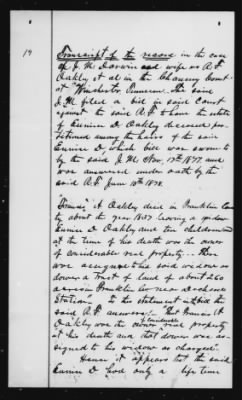 19
Transcript of the record in the case
of J. M. Darwin and wife vs A F
Oakley et al in the Chancery Court
at Winchester Tennessee. The said
J. M. filed a bill in said Court
against the said A F to have the estate
of Eunice D Oakley deceased par-
titioned among the heirs of the said
Eunice D, which bill was sworn to
by the said J. M. Nov, 17th 1877. and
was answered under oath by the
said A F June 10th 1878.
"Francis A Oakley died in Franklin Coun
ty about the year 1857 leaving a widow
Eunice D Oakley and ten children and
at the time of his death was the owner
of considerable real property... there
was assigned to his said widow as
dower a tract of land of about 260
acres in Franklin Co near Decherd
Station". to the statement in the bill the
said A F answers: "That Francis A
Oakley was the owner considerable real property
at his death and that dower was as-
signed to his widow as charged".
Hence it appears that the said
Eunice D had only a life time